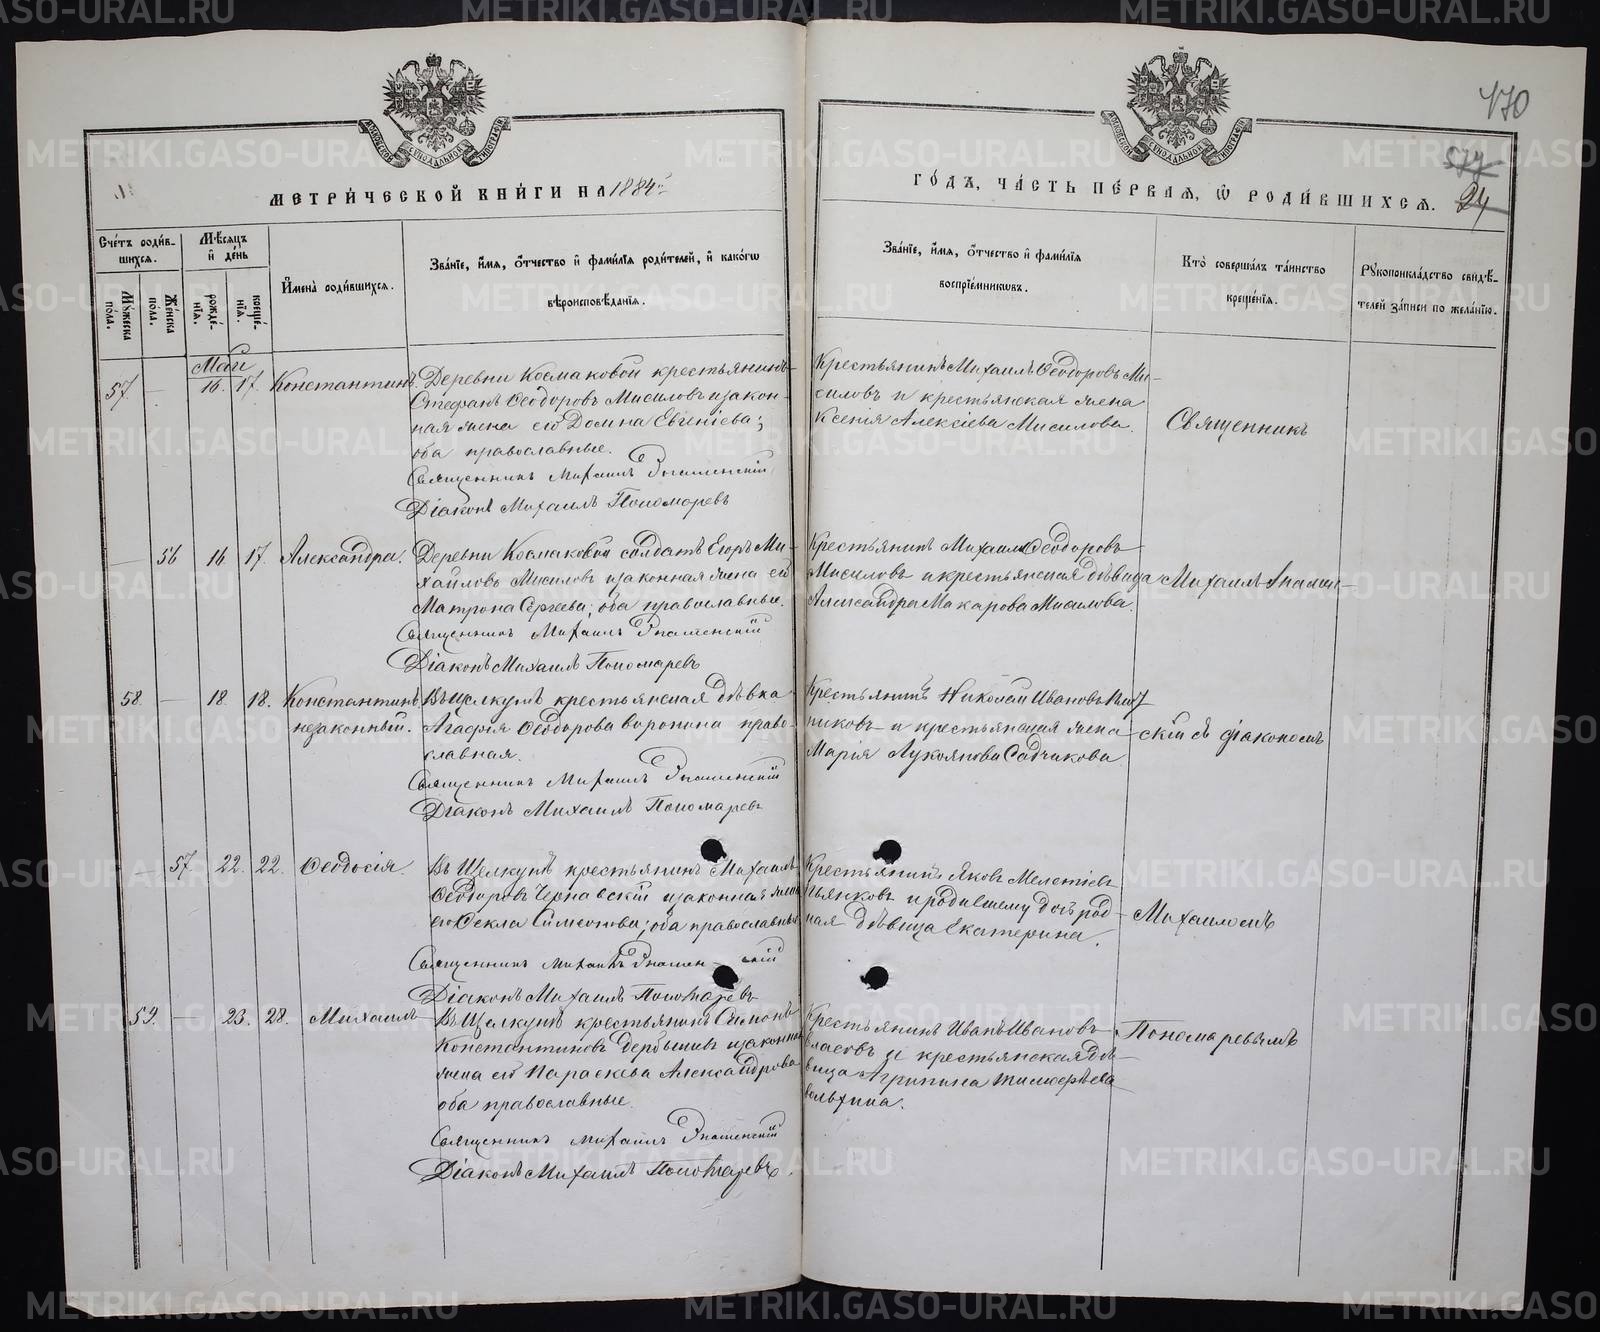 170
577
24
МЕТРИЧЕСКОЙ КНИГИ НА 1884й
ГОДЪ, ЧАСТЬ ПЕРВАЯ, Ѡ РОДИВШИХСЯ.
Счетъ родив-
шихся.
Мѣсяцъ
и день
Имена родившихся.
Званіе, имя, отчество и фамилія родителей, и какогѡ
вѣроисповѣданія.
Званіе, имя, отчество и фамилія
воспріемниковъ.
Кто совершалъ таинство
крещенія.
Рукоприкладство свидѣ-
телей записи по желанію.
Мужеска
пола.
Женска
пола.
рожде-
нія.
креще-
нія.
Май
57. — 16. 17. Константинъ.
Деревни Космаковой крестьянинъ
Стефанъ Ѳеодоровъ Мисиловъ и закон-
ная жена его Домна Евгеніева;
оба православные.
Священникъ Михаилъ Знаменскій
Діаконъ Михаилъ Пономаревъ
Крестьянинъ Михаилъ Ѳеодоровъ Ми-
силовъ и крестьянская жена
Ксенія Алексіева Мисилова.
Священникъ
— 56 16. 17. Александра.
Деревни Космаковой солдатъ Егоръ Ми-
хайловъ Мисиловъ и законная жена его
Матрона Сергеева; оба православные.
Священникъ Михаилъ Знаменскій
Діаконъ Михаилъ Пономаревъ
Крестьянинъ Михаилъ Ѳеодоровъ
Мисиловъ и крестьянская дѣвица
Александра Макарова Мисилова.
Михаилъ Знамен-
58. — 18. 18. Константинъ
незаконный.
Въ Щелкунѣ крестьянская дѣвка
Агафія Ѳеодорова Воронина право-
славная.
Священникъ Михаилъ Знаменскій
Діаконъ Михаилъ Пономаревъ
Крестьянинъ Николай Ивановъ
никовъ и крестьянская жена
Марія Лукоянова Садчикова
скій съ діакономъ
— 57. 22. 22. Ѳеодосія.
Въ Щелкунѣ крестьянинъ Михаилъ
Ѳеодоровъ Чернавскій и законная жена
его Ѳекла Симеонова; оба православные
Священникъ Михаилъ Знамен-скій
Діаконъ Михаилъ Пономаревъ
Крестьянинъ Яковъ Мелетіевъ
Пьянковъ и родившему дочь род-
ная дѣвица Екатерина.
Михаиломъ
59. — 23. 28. Михаилъ
Въ Щелкунѣ крестьянинъ Симонъ
Константиновъ Дербышевъ и законная
жена его Параскева Александрова
оба православные.
Священникъ Михаилъ Знаменскій
Діаконъ Михаилъ Пономаревъ.
Крестьянинъ Иванъ Ивановъ
Власовъ и крестьянская дѣ-
вица Агрипина
Пономаревымъ